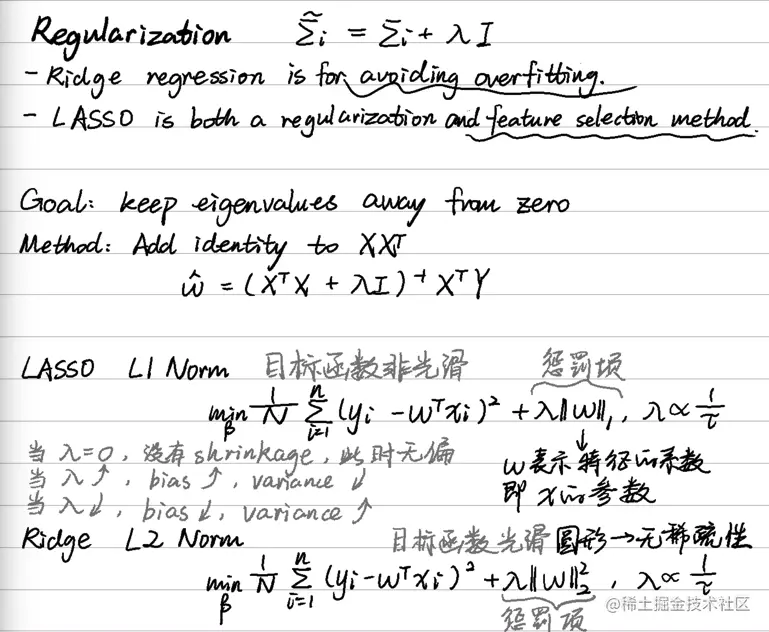 Regularization Σ̃i = Σi + λI
- Ridge regression is for avoiding overfitting.
- LASSO is both a regularization and feature selection method.
Goal: keep eigenvalues away from zero
Method: Add identity to XXᵀ
ŵ = (XᵀX + λI)⁻¹XᵀY
LASSO L1 Norm 目标函数非光滑 惩罚项
min_β 1/N Σ_{i=1}^{n} (yi - wᵀxi)² + λ‖w‖₁, λ ∝ 1/τ
当 λ=0, 没有shrinkage, 此时无偏
当 λ↑, bias↑, variance↓
当 λ↓, bias↓, variance↑
↓
w表示特征的系数
即 x的参数
Ridge L2 Norm 目标函数光滑 圆形→无稀疏性
min_β 1/N Σ_{i=1}^{n} (yi - wᵀxi)² + λ‖w‖₂², λ ∝ 1/τ
惩罚项
@稀土掘金技术社区